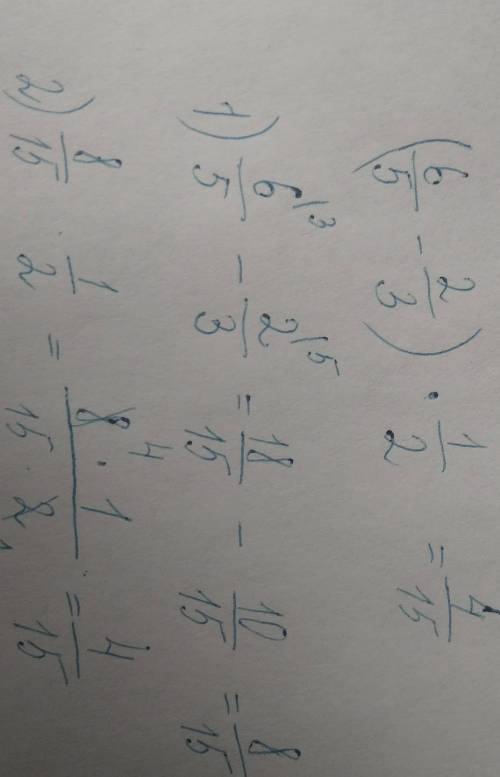 (6/5 - 2/3) · 1/2 = 4/15
1) 6/5 |3 - 2/3 |5 = 18/15 - 10/15 = 8/15
2) 8/15 · 1/2 = 8 4 · 1 / 15 · 2 1 = 4/15